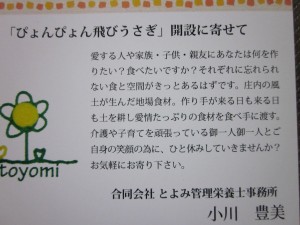 「ぴょんぴょん飛びうさぎ」開設に寄せて
愛する人や家族・子供・親友にあなたは何を作
りたい？食べたいですか？それぞれに忘れられ
ない食と空間がきっとあるはずです。庄内の風
土が生んだ地場食材。作り手が来る日も来る日
も土を耕し愛情たっぷりの食材を食べ手に渡す。
介護や子育てを頑張っている御一人御一人とご
自身の笑顔の為に、ひと休みしていきませんか？
お気軽にお寄り下さい。
toyomi
合同会社 とよみ管理栄養士事務所
小川 豊美